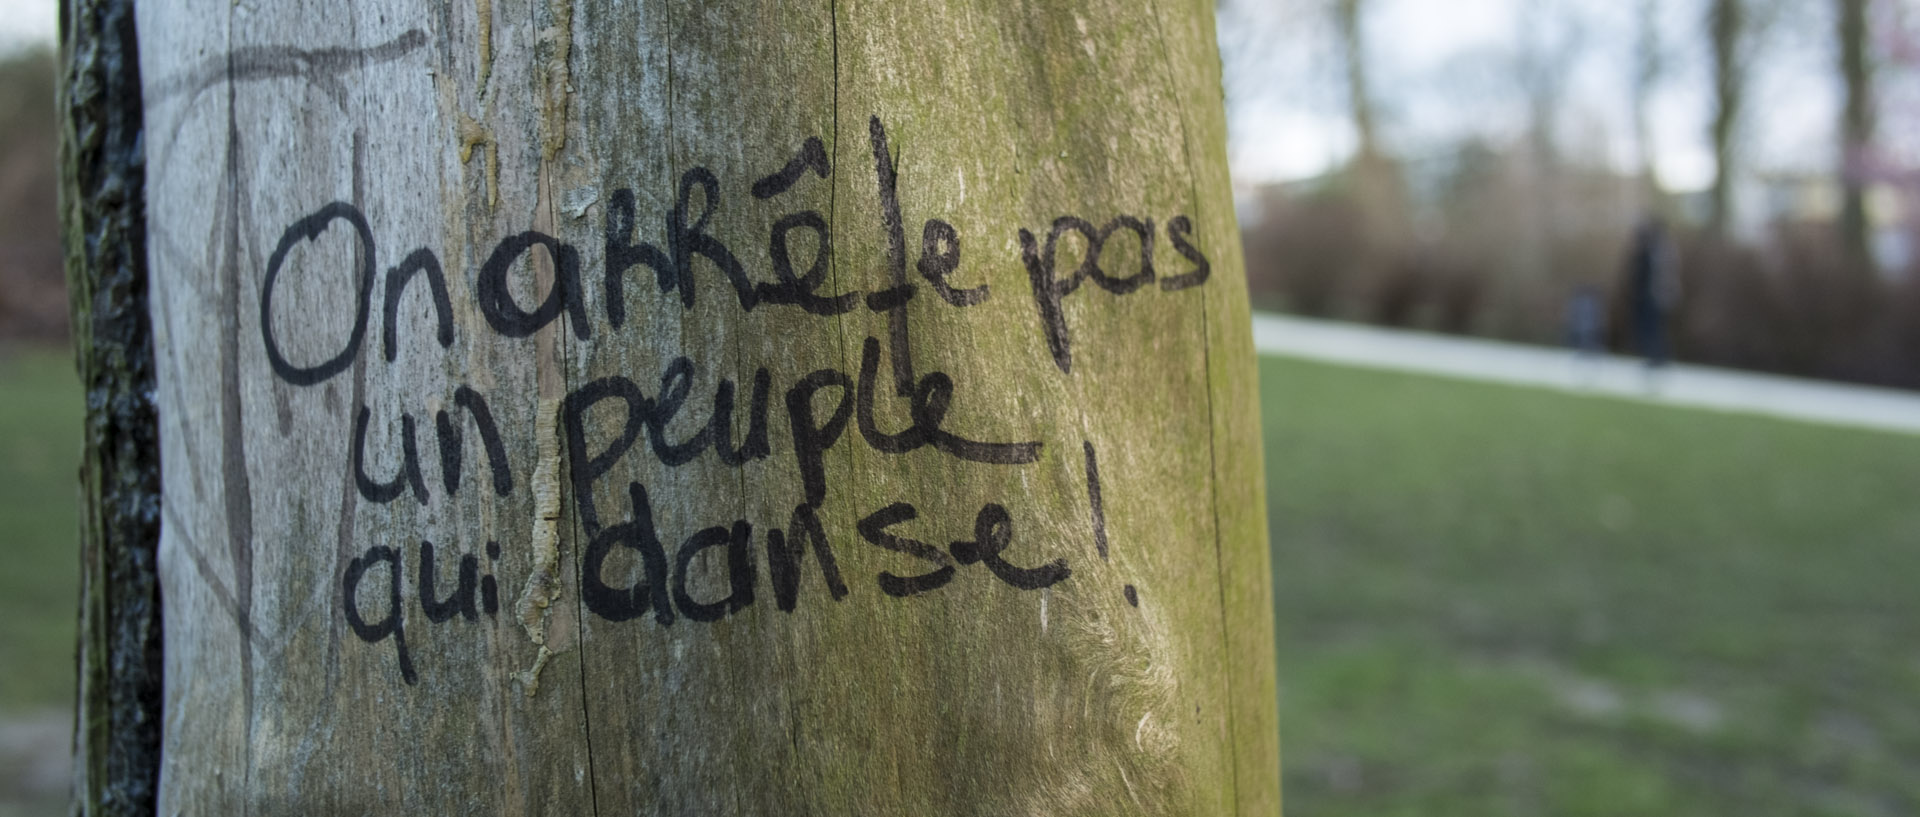 On arrête pas
un peuple
qui danse !